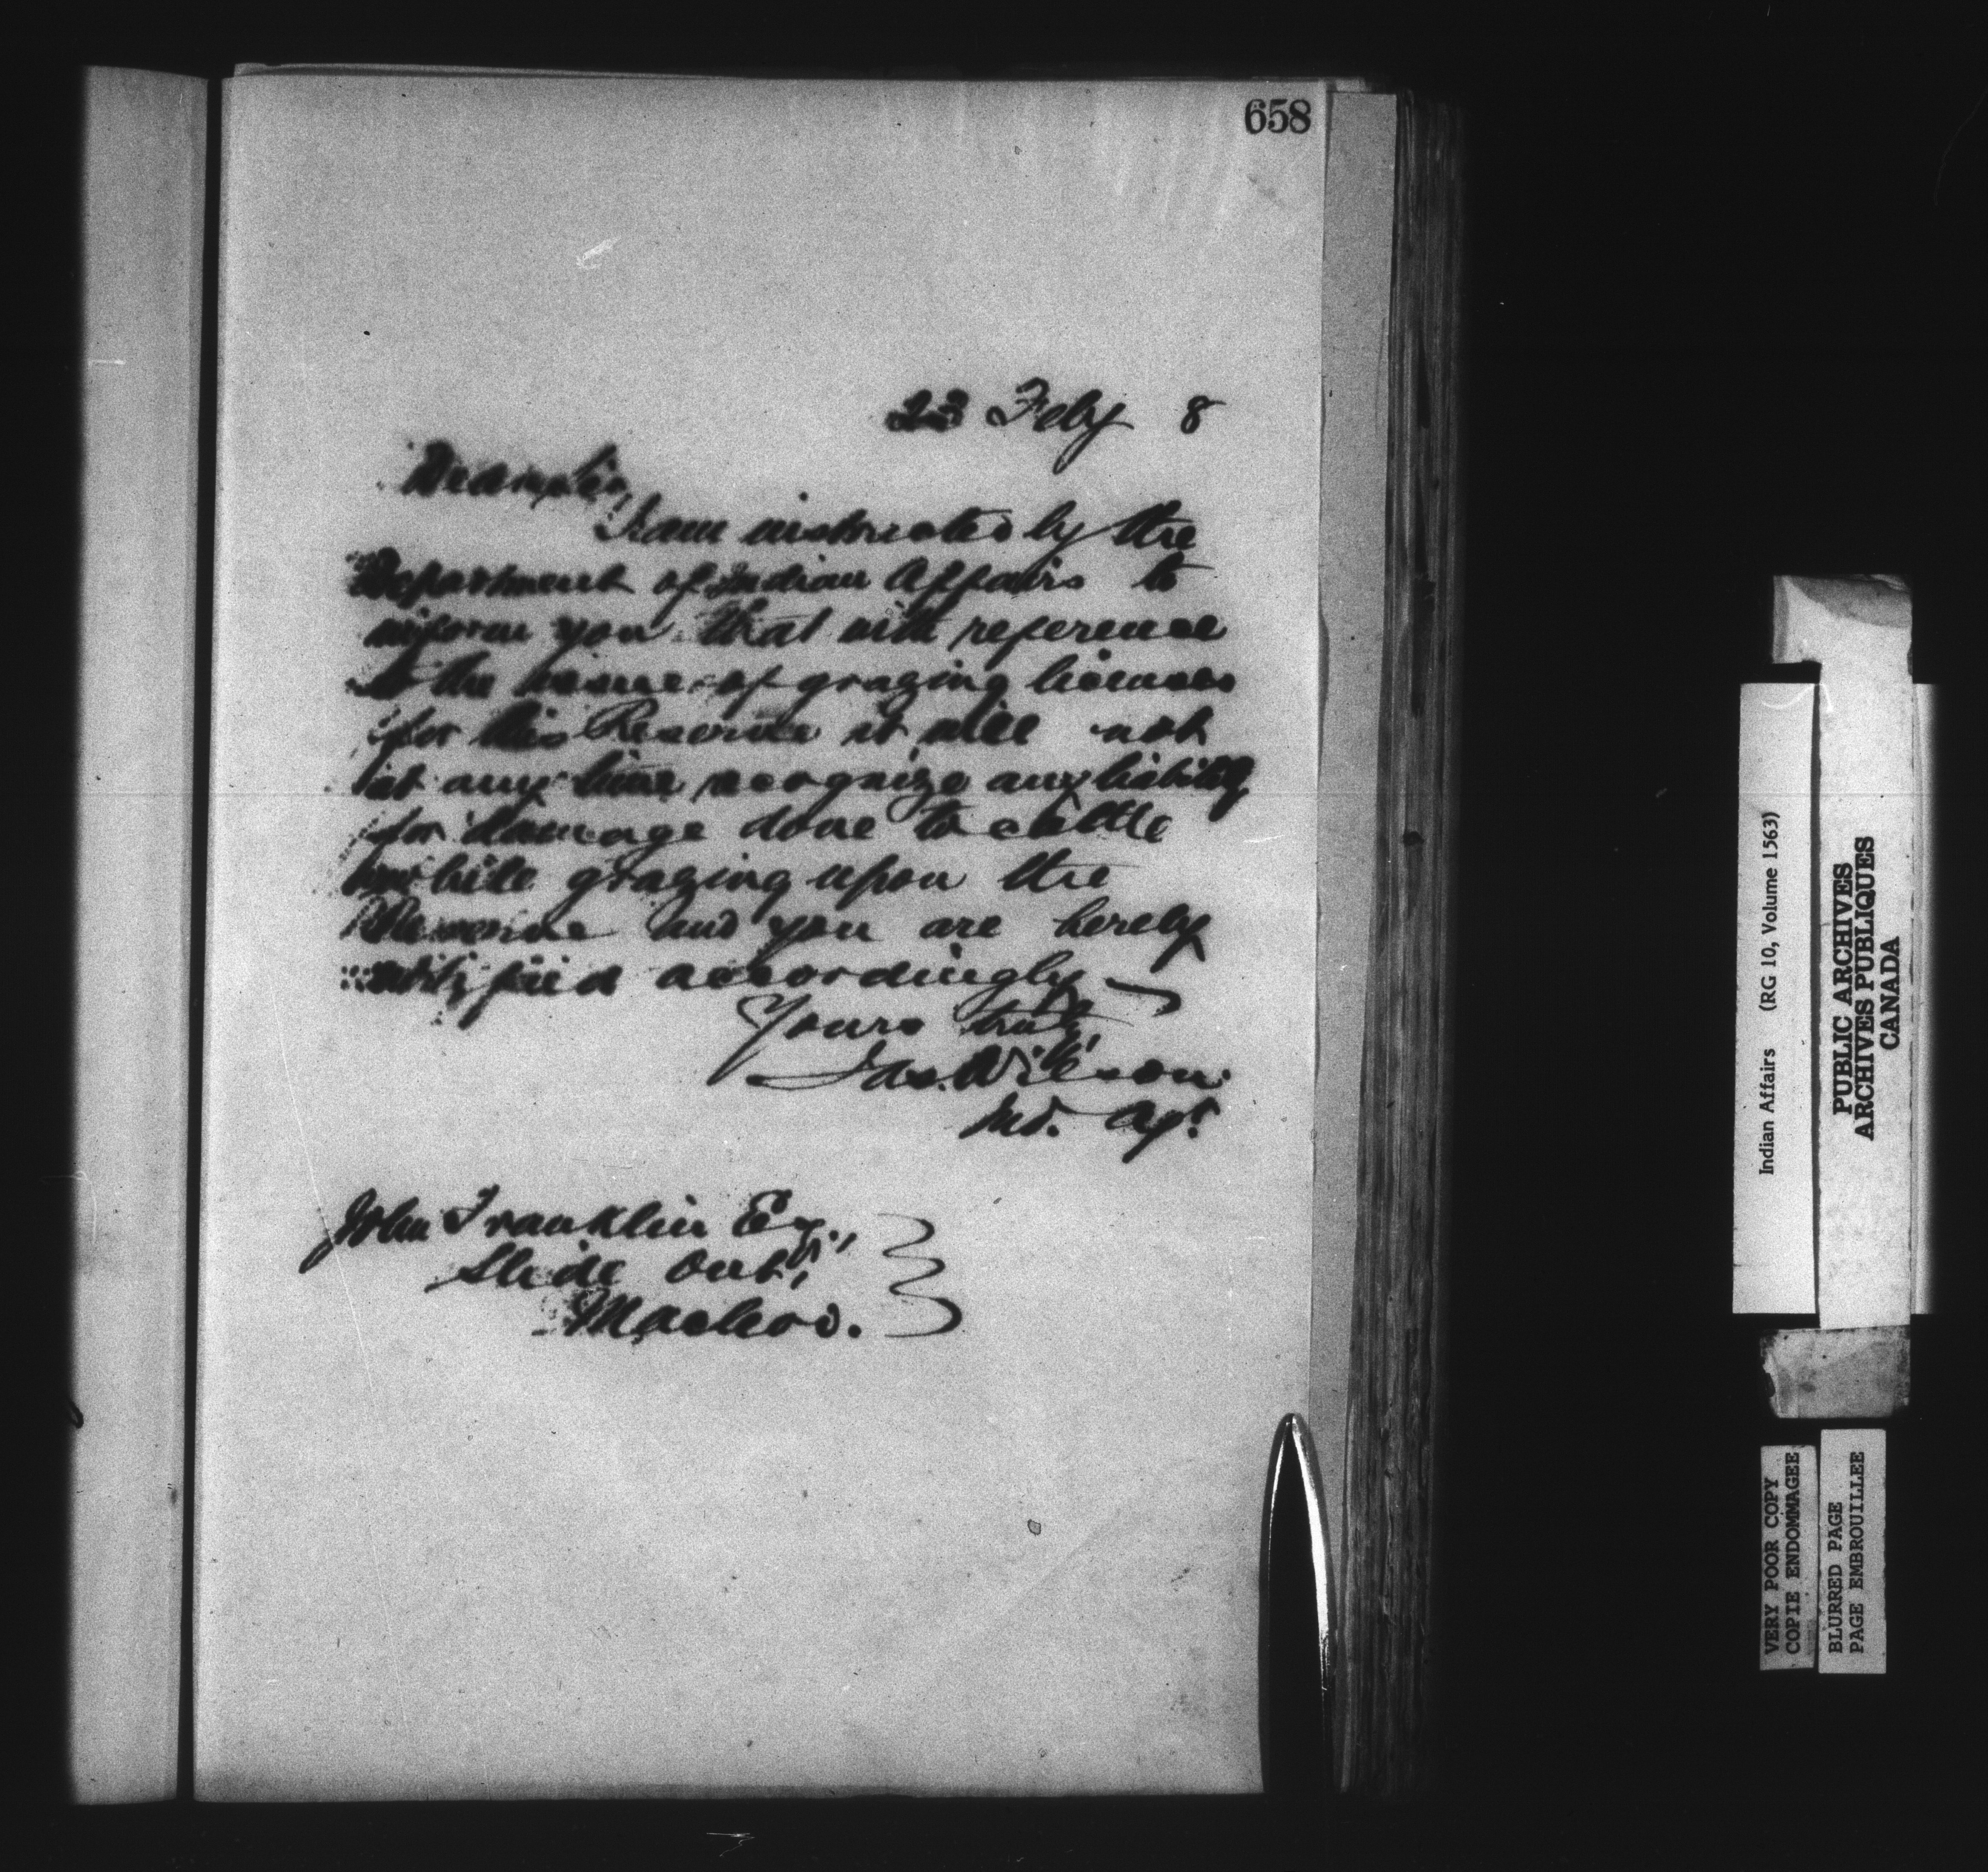 658
23 Feby 8
Dear Sir,
I am instructed by the
Department of Indian Affairs to
inform you that with reference
to the issue of grazing licenses
for this Reserve it will not
at any time recognize any liability
for damage done to cattle
while grazing upon the
Reserve and you are hereby
notified accordingly
Yours truly,
Jas. Wilson.
Ind. Agt.
John Franklin Esq.,
Slide Out,
Macleod.
Indian Affairs (RG 10, Volume 1563)
PUBLIC ARCHIVES
ARCHIVES PUBLIQUES
CANADA
VERY POOR COPY
COPIE ENDOMMAGEE
BLURRED PAGE
PAGE EMBROUILLEE